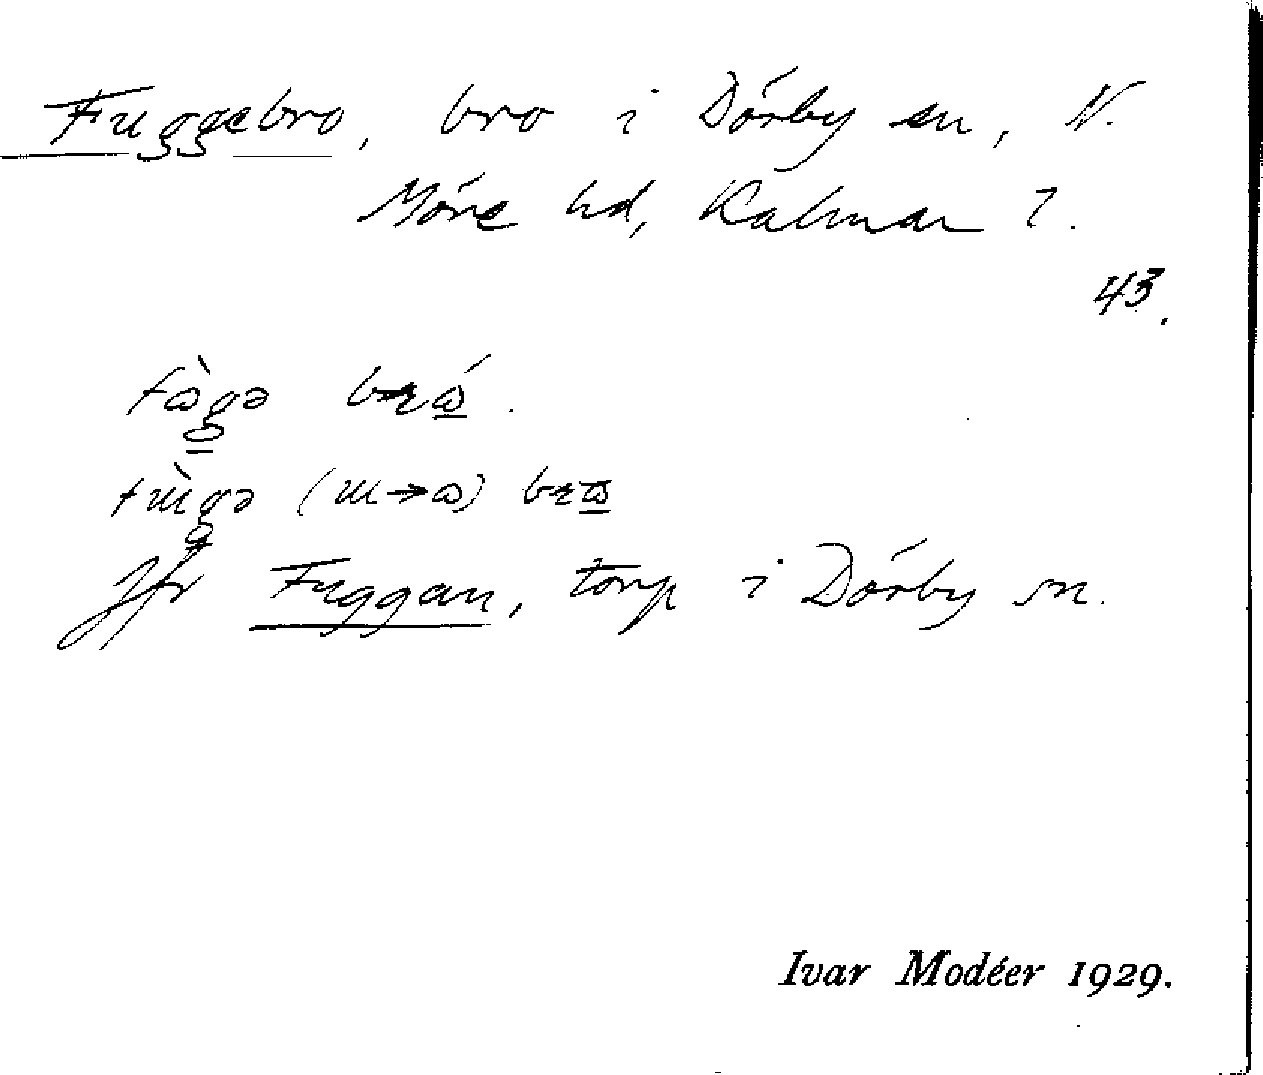 Fuggebro, bro i Dörby sn, N.
Möre hd, Kalmar l.
43.
Jfr Fuggan, torp i Dörby sn.
Ivar Modéer 1929.